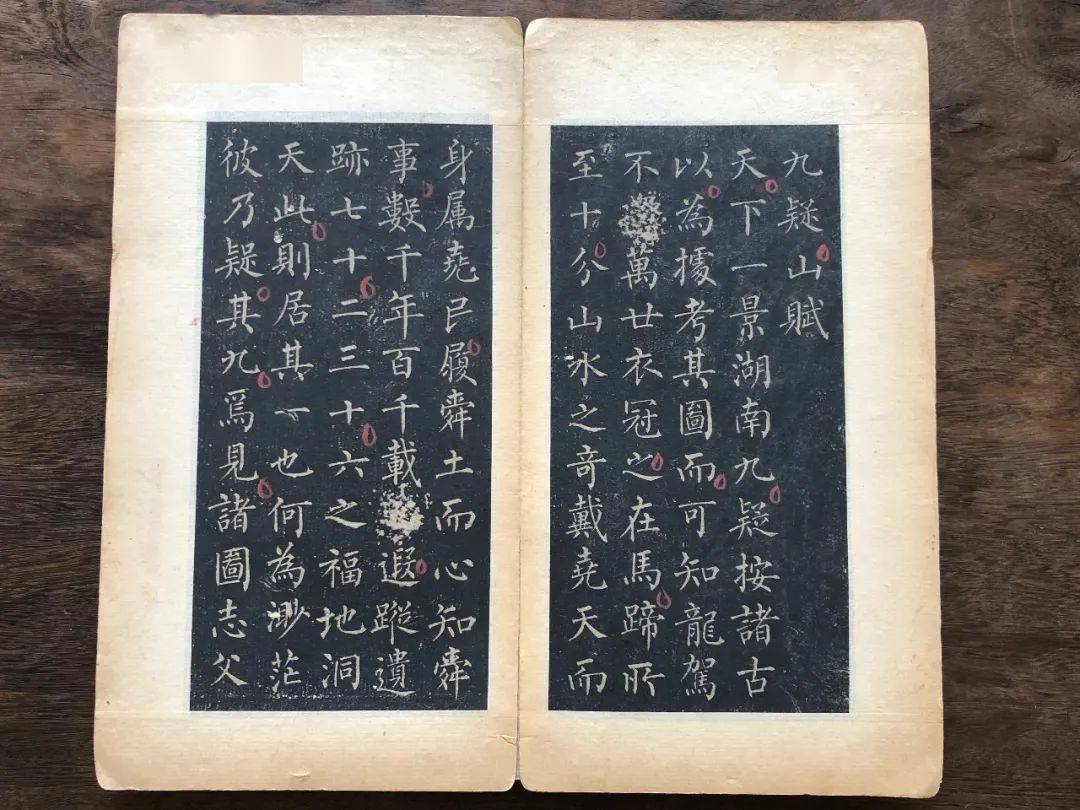 九疑山賦
天下一景湖南九疑按諸古
以為據考其圖而可知龍駕
不萬廿衣冠之在馬蹄所
至十分山水之奇戴堯天而
身属堯民履舜土而心知舜
事數千年百千載遐蹤遺
跡七十二三十六之福地洞
天此則居其一也何為渺茫
彼乃疑其九焉見諸圖志父